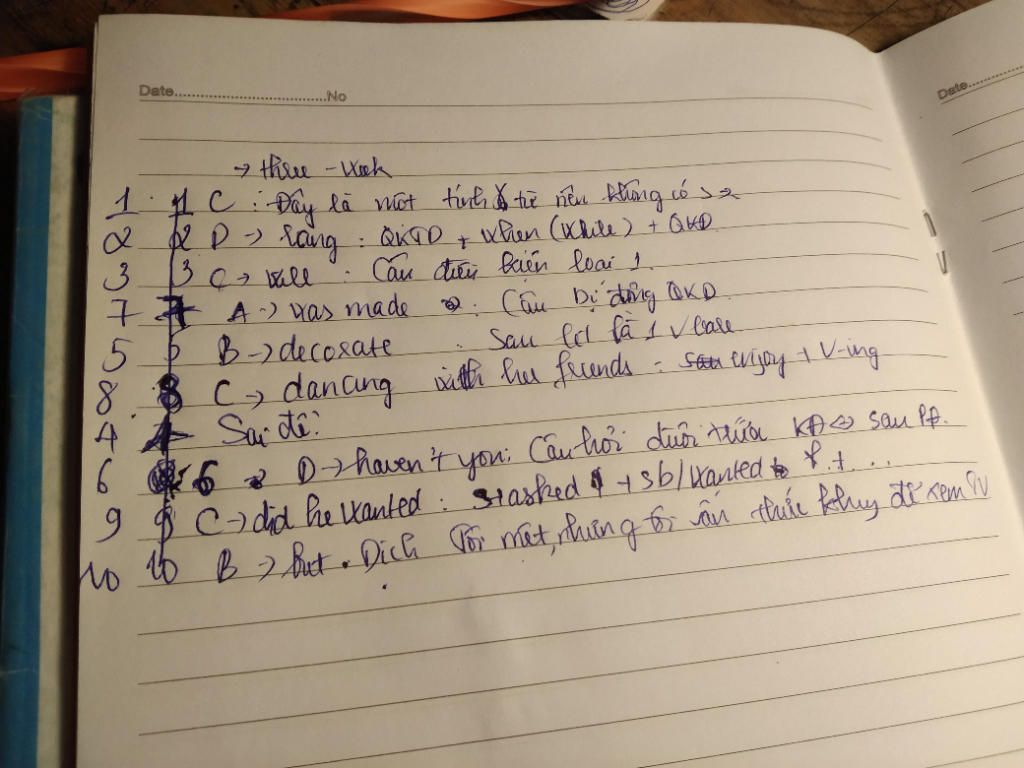 Date..............................No
Date..........
→ three - week
1 1 C : Đây là một tính từ nên không có s
2 2 D → rang : QKTD + when (while) + QKD
3 3 C → will : Câu điều kiện loại 1.
7 7 A → was made : Câu bị động QKD
5 5 B → decorate : Sau let là 1 V bare
8 8 C → dancing with her friends : enjoy + V-ing
4 4 Sai đề.
6 6 D → haven't you: Câu hỏi đuôi trước KĐ <=> sau PĐ.
9 9 C → did he wanted : S + asked + sb/wanted + ...
10 10 B → but . Dịch Tôi mệt, nhưng tôi vẫn thức khuy để xem TV